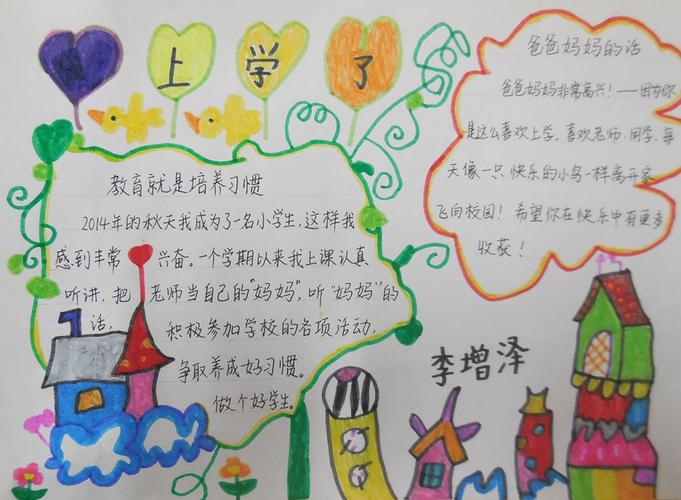 上学了
教育就是培养习惯
2014年的秋天我成为了一名小学生,这样我
感到丰常兴奋。一个学期以来我上课认真
听讲,把老师当自己的"妈妈",听"妈妈"的
话,积极参加学校的各项活动,
争取养成好习惯。
做个好学生。
爸爸妈妈的话
爸爸妈妈非常高兴!——因为你
是这么喜欢上学,喜欢老师、同学,每
天像一只快乐的小鸟一样离开家
飞向校园!希望你在快乐中有更多
收获!
李增泽